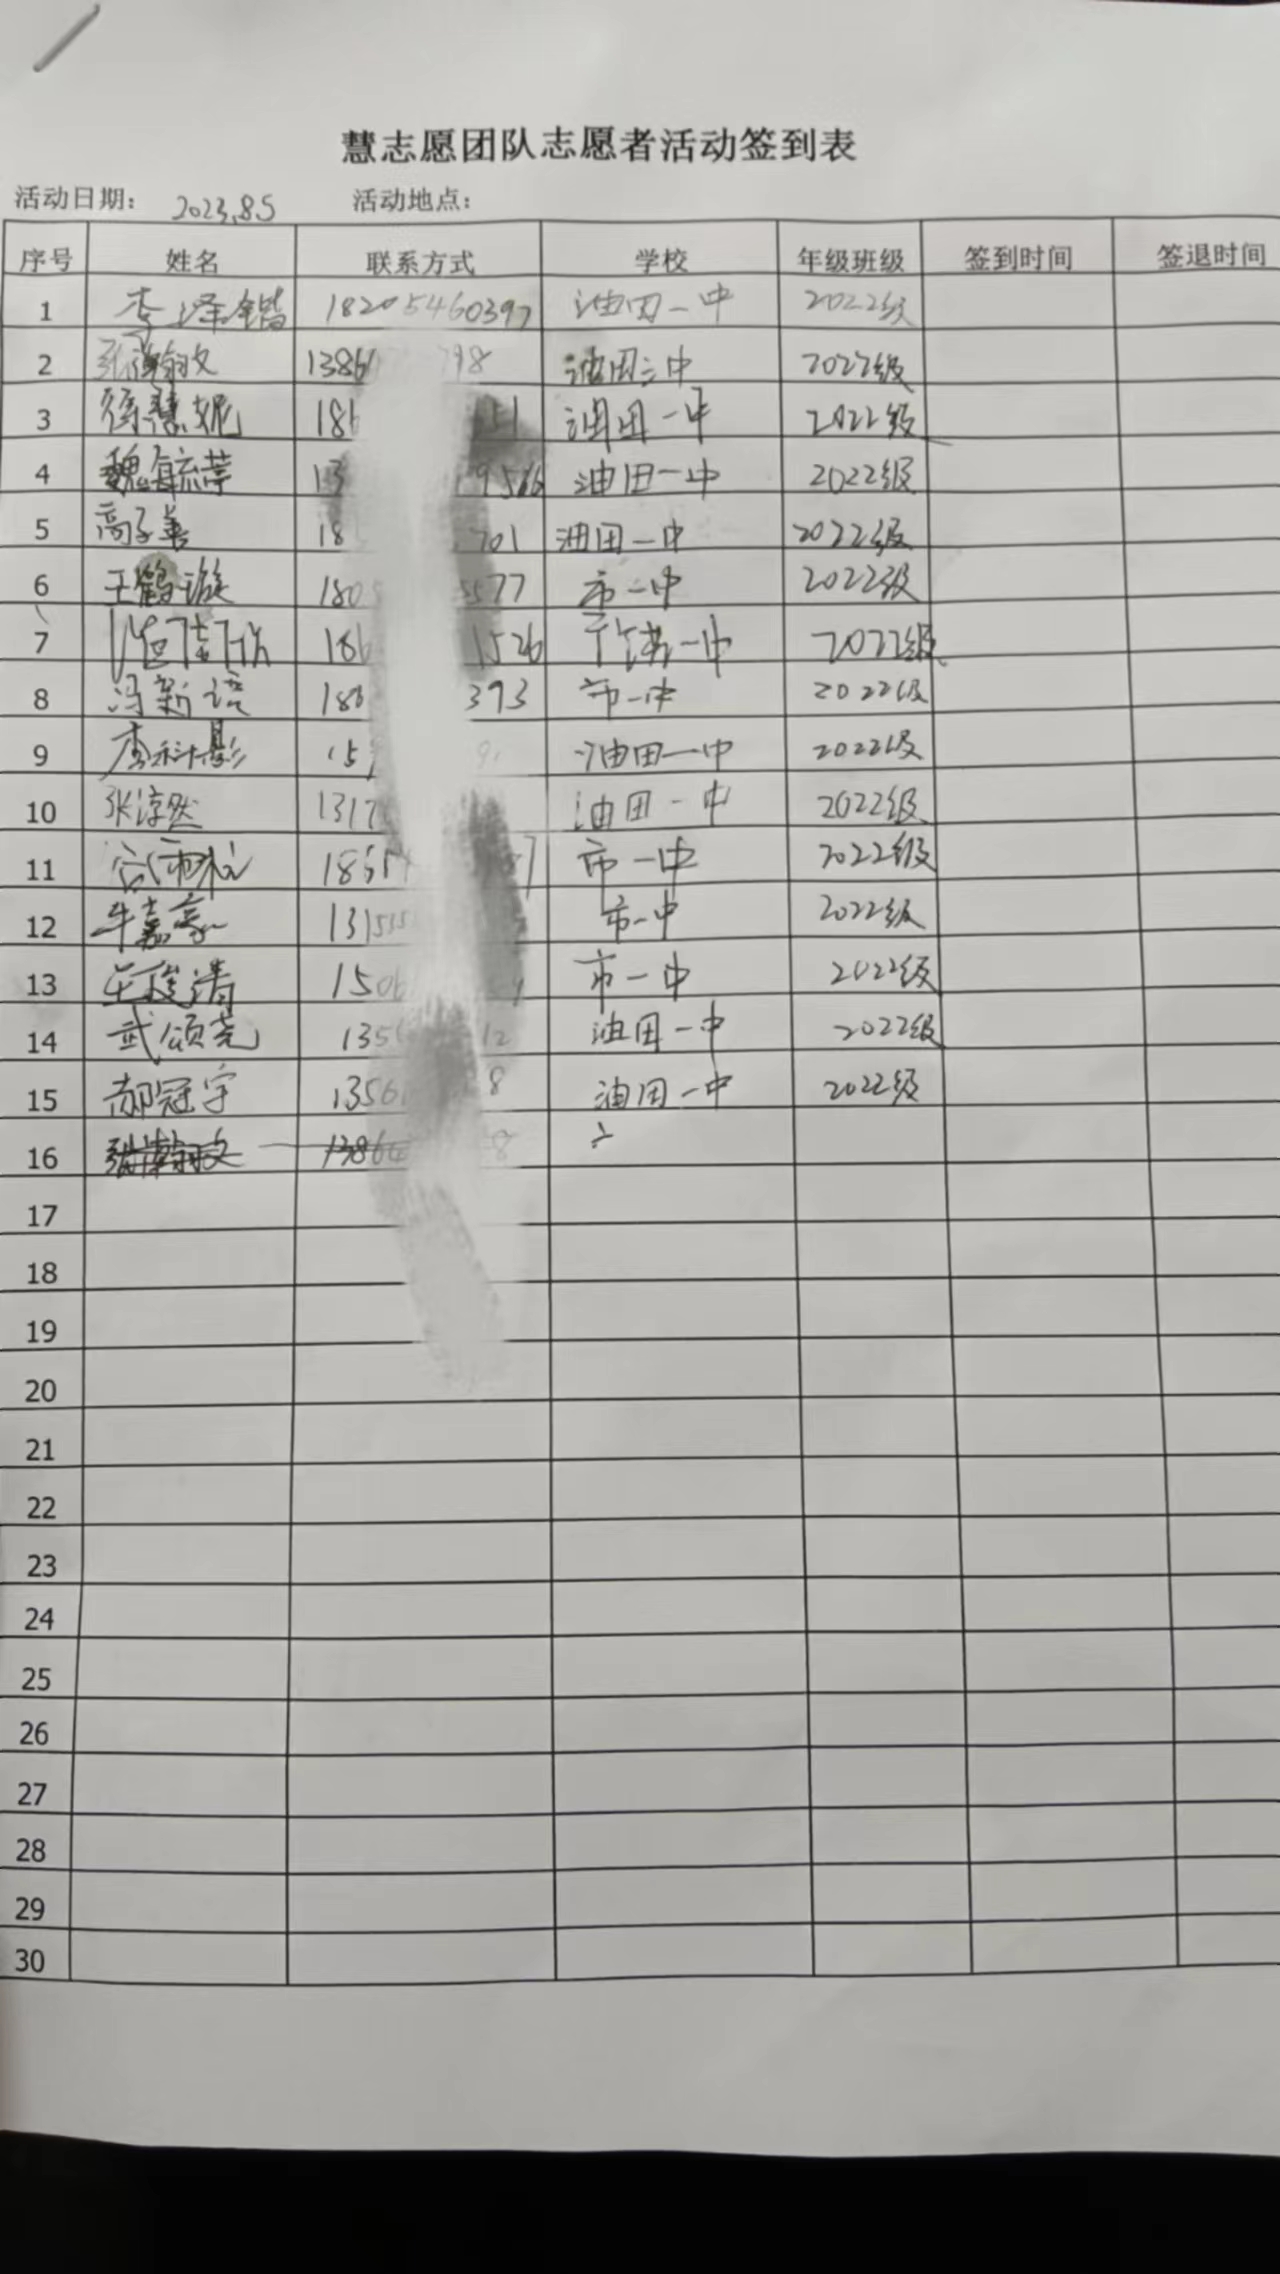 慧志愿团队志愿者活动签到表
活动日期： 2023.8.5 活动地点：
序号 姓名 联系方式 学校 年级班级 签到时间 签退时间
1 李泽锴 18205460397 油田一中 2022级
2 张瀚文 1386 798 油田二中 2022级
3 徐慧妮 186 51 油田一中 2022级
4 魏毓 13 9566 油田一中 2022级
5 高子善 18 701 油田一中 2022级
6 王鹤璇 180 577 市一中 2022级
7 186 1526 一中 2022级
8 冯新语 186 393 市一中 2022级
9 李科影 15 91 油田一中 2022级
10 张淳然 1317 油田一中 2022级
11 1865 7 市一中 2022级
12 牛嘉豪 131555 市一中 2022级
13 王俊清 1506 市一中 2022级
14 武颂尧 1356 12 油田一中 2022级
15 郝冠宇 1356 8 油田一中 2022级
16 张瀚文 1386 8
17
18
19
20
21
22
23
24
25
26
27
28
29
30